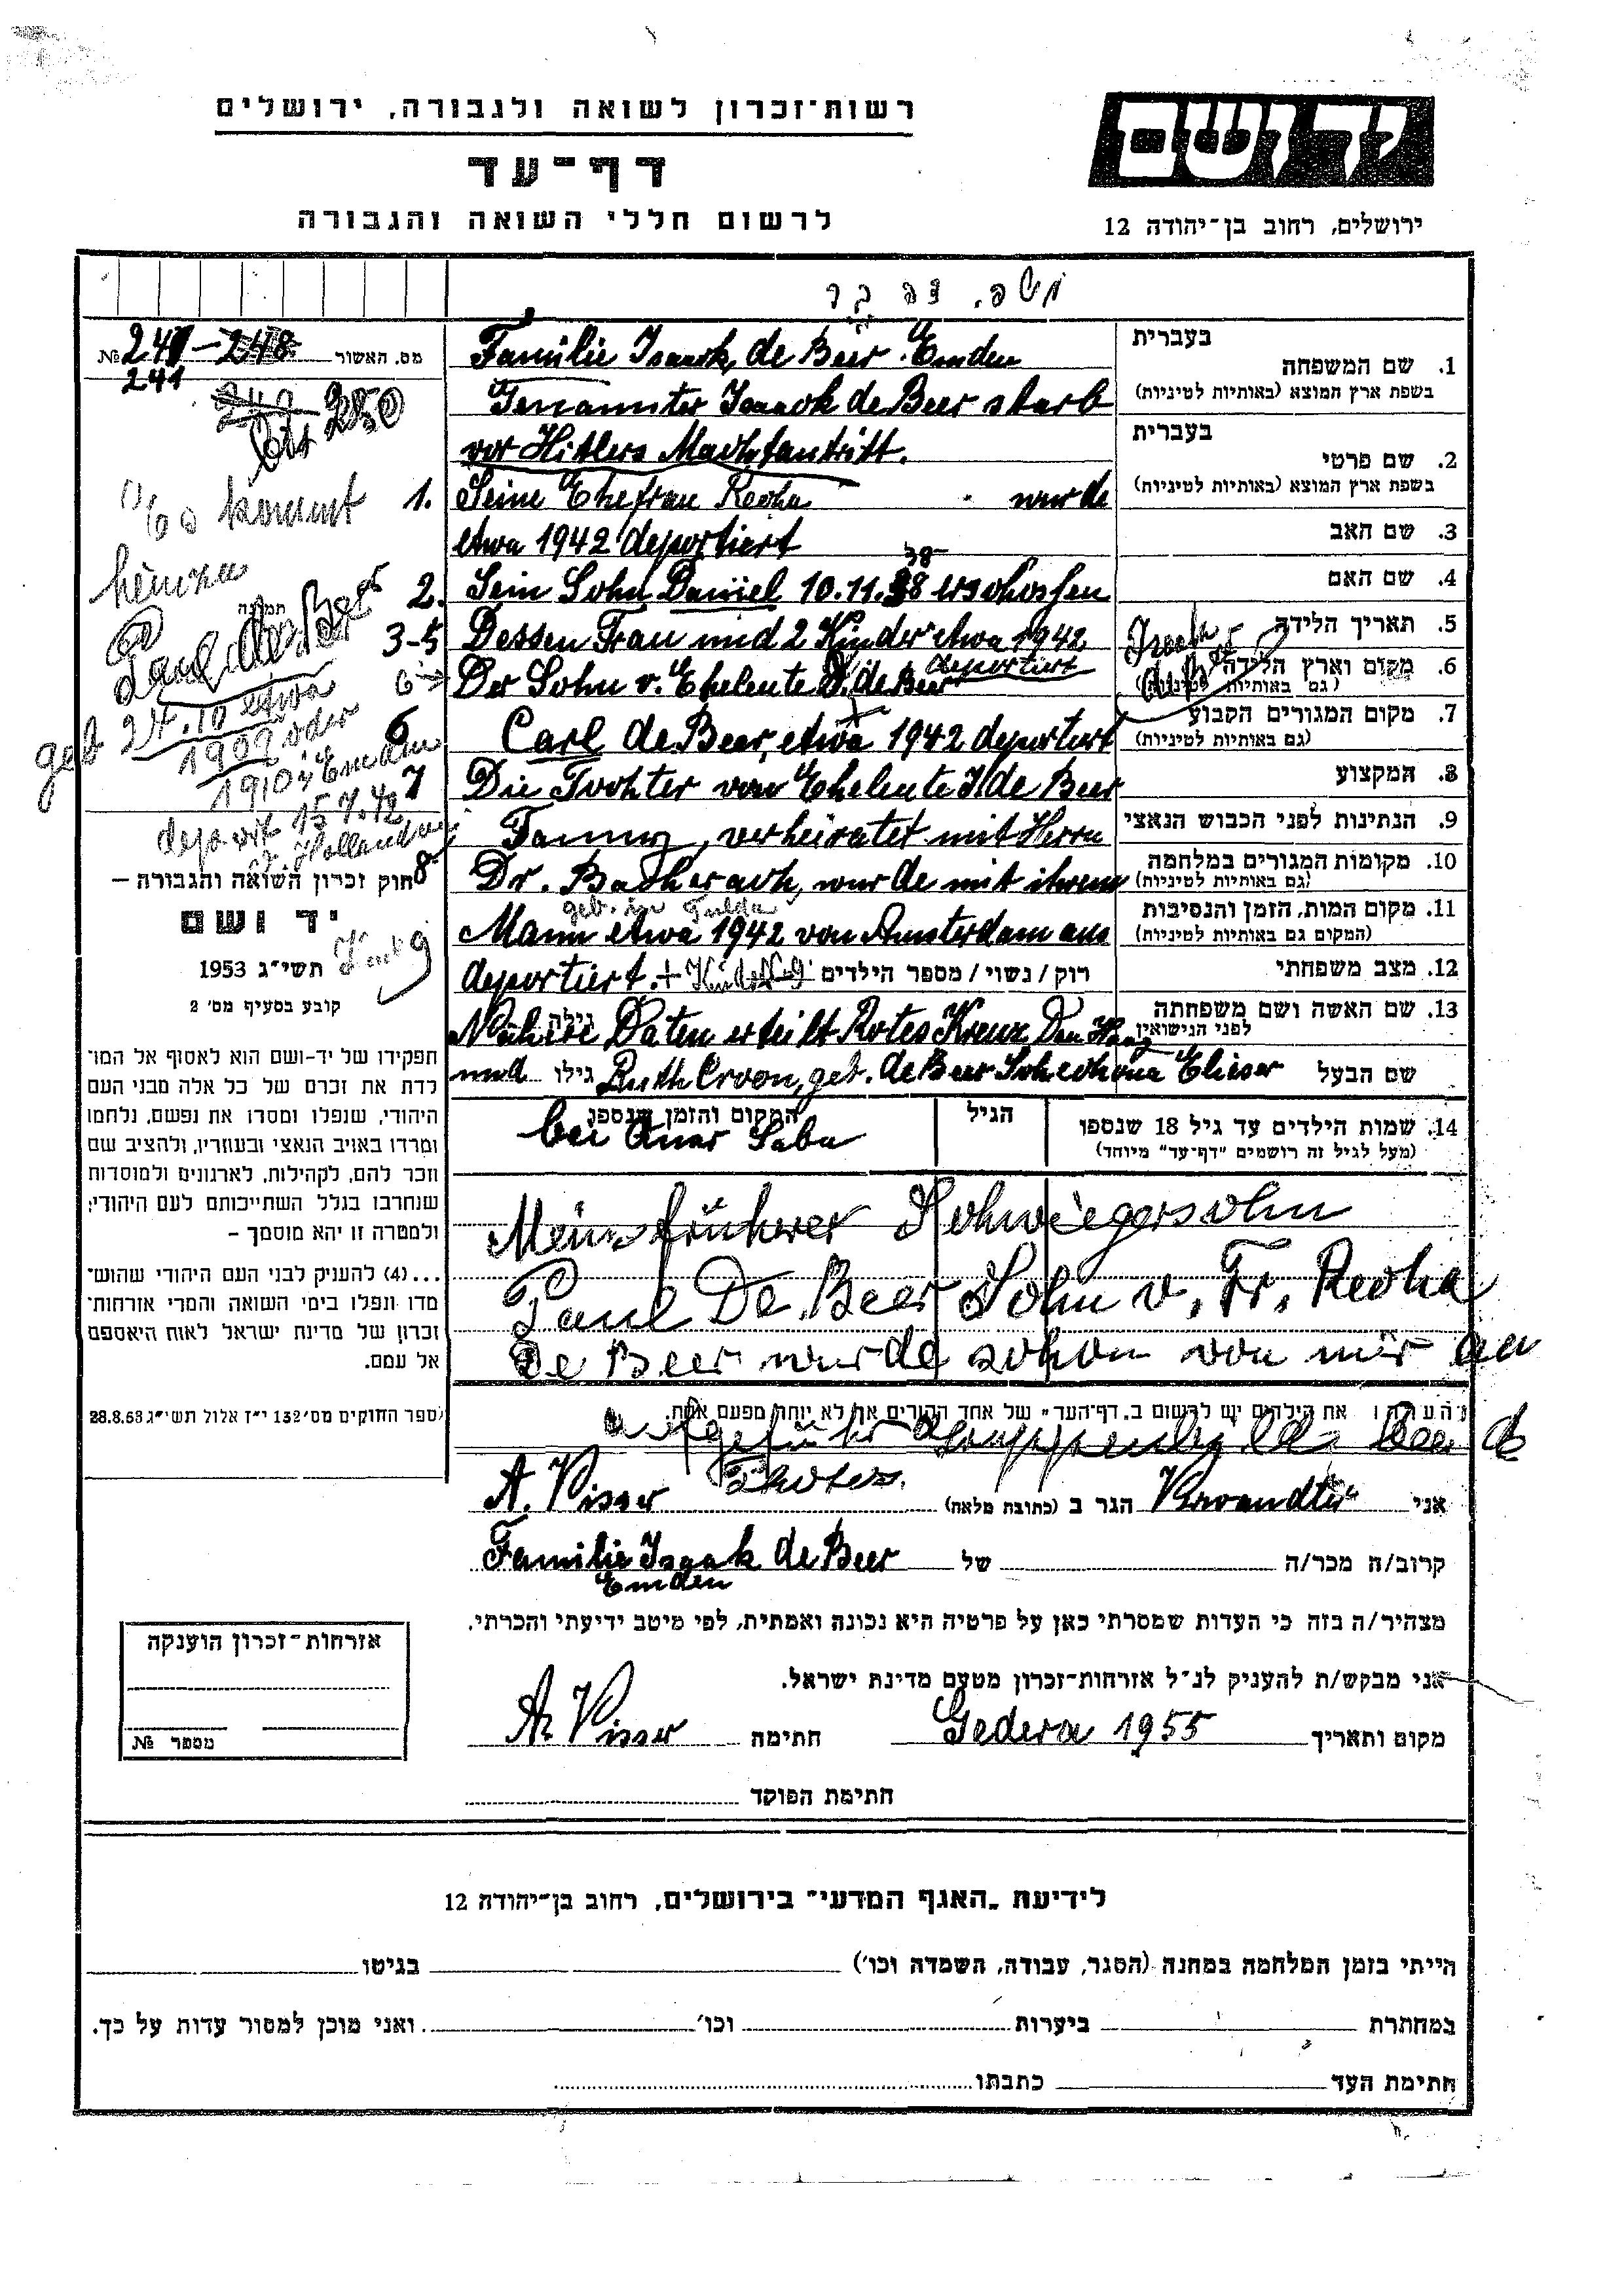 רשות־זכרון לשואה ולגבורה, ירושלים
יד ושם
דף־עד
לרשום חללי השואה והגבורה
ירושלים, רחוב בן־יהודה 12
משפ. דה בר
מס. האשור
№
241
250
בעברית
1. שם המשפחה
בשפת ארץ המוצא (באותיות לטיניות)
Familie Isaack de Beer Emden
Genannter Isaack de Beer starb
בעברית
2. שם פרטי
בשפת ארץ המוצא (באותיות לטיניות)
vor Hitlers Machtantritt.
1. Seine Ehefrau Recha wurde
3. שם האב
etwa 1942 deportiert
4. שם האם
38
2. Sein Sohn Daniel 10.11.38 erschossen
5. תאריך הלידה
3-5 Dessen Frau und 2 Kinder etwa 1942
deportiert
6. מקום וארץ הלידה
(גם באותיות לטיניות)
Der Sohn v. Eheleute I. de Beer
7. מקום המגורים הקבוע
(גם באותיות לטיניות)
6 Carl de Beer, etwa 1942 deportiert
8. המקצוע
7 Die Tochter von Eheleute I de Beer
9. הנתינות לפני הכבוש הנאצי
Fanny, verheiratet mit Herrn
10. מקומות המגורים במלחמה
(גם באותיות לטיניות)
8 Dr. Bacherach, wurde mit ihrem
geb. in Fulda
11. מקום המות, הזמן והנסיבות
(המקום גם באותיות לטיניות)
Mann etwa 1942 von Amsterdam aus
12. מצב משפחתי
רוק / נשוי / מספר הילדים
deportiert. + Kind 9
13. שם האשה ושם משפחתה
לפני הנישואין
גילה
Nähere Daten erteilt Rotes Kreuz Den Haag
שם הבעל
גילו
und Ruth Croon, geb. de Beer Schechona Elieser
14. שמות הילדים עד גיל 18 שנספו
(מעל לגיל זה רושמים "דף־עד" מיוחד)
הגיל
המקום והזמן שנספו
bei Quar Saba
Mein früherer Schwiegersohn
Paul De Beer Sohn v. Fr. Recha
De Beer wurde schon von mir an
kommt
hinzu
תמונה
Paul de Beer
geb 24.10 etwa
1909 oder
1910 in Emden
deportit 15.7.42
v. Holland
Kind 9
חוק זכרון השואה והגבורה –
יד ושם
תשי״ג 1953
קובע בסעיף מס׳ 2
תפקידו של יד-ושם הוא לאסוף אל המו־
לדת את זכרם של כל אלה מבני העם
היהודי, שנפלו ומסרו את נפשם, נלחמו
ומרדו באויב הנאצי ובעוזריו, ולהציב שם
וזכר להם, לקהילות, לארגונים ולמוסדות
שנחרבו בגלל השתייכותם לעם היהודי;
ולמטרה זו יהא מוסמך –
...(4) להעניק לבני העם היהודי שהוש־
מדו ונפלו בימי השואה והמרי אזרחות־
זכרון של מדינת ישראל לאות היאספם
אל עמם.
(ספר החוקים מס׳ 132 י״ז אלול תשי״ג 28.8.53
הערה: את הילדים יש לרשום ב"דף־העד" של אחד ההורים אך לא יותר מפעם אחת.
aufgeführt
אני Verwandter הגר ב (כתובת מלאה) A. Visser
קרוב/ה מכר/ה של Familie Isaak de Beer
Emden
מצהיר/ה בזה כי העדות שמסרתי כאן על פרטיה היא נכונה ואמתית, לפי מיטב ידיעתי והכרתי.
אני מבקש/ת להעניק לנ״ל אזרחות־זכרון מטעם מדינת ישראל.
מקום ותאריך Gedera 1955 חתימה A. Visser
חתימת הפוקד
אזרחות־זכרון הוענקה
מספר №
לידיעת "האגף המדעי" בירושלים, רחוב בן־יהודה 12
הייתי בזמן המלחמה במחנה (הסגר, עבודה, השמדה וכו׳) בגיטו
במחתרת ביערות וכו׳ ואני מוכן למסור עדות על כך.
חתימת העד כתבתו